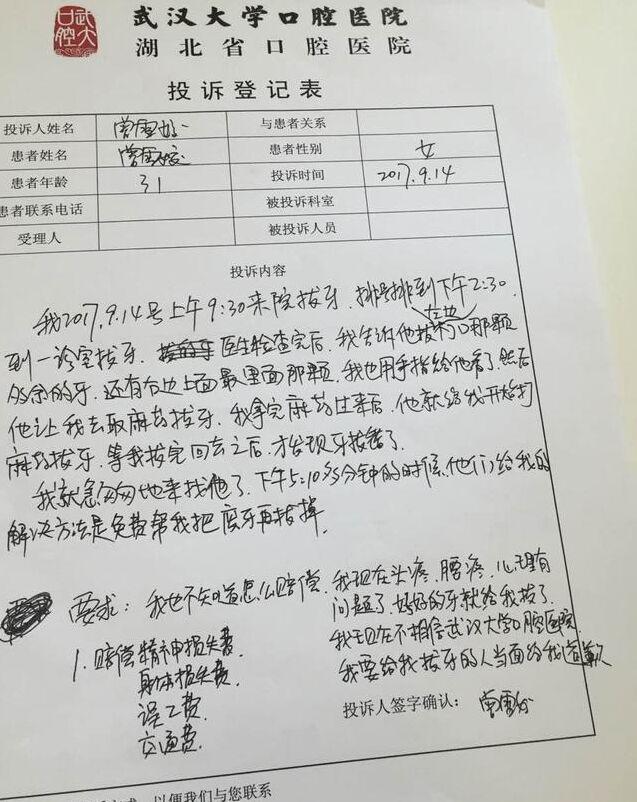 武大口腔
武汉大学口腔医院
湖北省口腔医院
投诉登记表
投诉人姓名 曾雪 与患者关系
患者姓名 曾雪 患者性别 女
患者年龄 31 投诉时间 2017.9.14
患者联系电话 被投诉科室
受理人 被投诉人员
投诉内容
我2017.9.14号上午9:30来院拔牙，排号排到下午2:30
到一诊室拔牙，医生检查完后，我告诉他拔左边门口那颗
多余的牙，还有右边上面最里面那颗，我也用手指给他看了，然后
他让我去取麻药拔牙，我拿完麻药过来后，他就给我开始打
麻药拔牙，等我拔完回去之后，才发现牙拔错了
我就急匆匆地来找他了，下午5:10多分钟的时候，他们给我的
解决方法是免费帮我把底牙再拔掉
要求：我也不知道怎么赔偿，我现在头疼，腰疼，心理有
问题了，好好的牙就给我拔了
1.赔偿精神损失费， 我现在不相信武汉大学口腔医院
身体损失费， 我要给我拔牙的人当面给我道歉
误工费，
交通费，
投诉人签字确认： 曾雪
以便我们与您联系